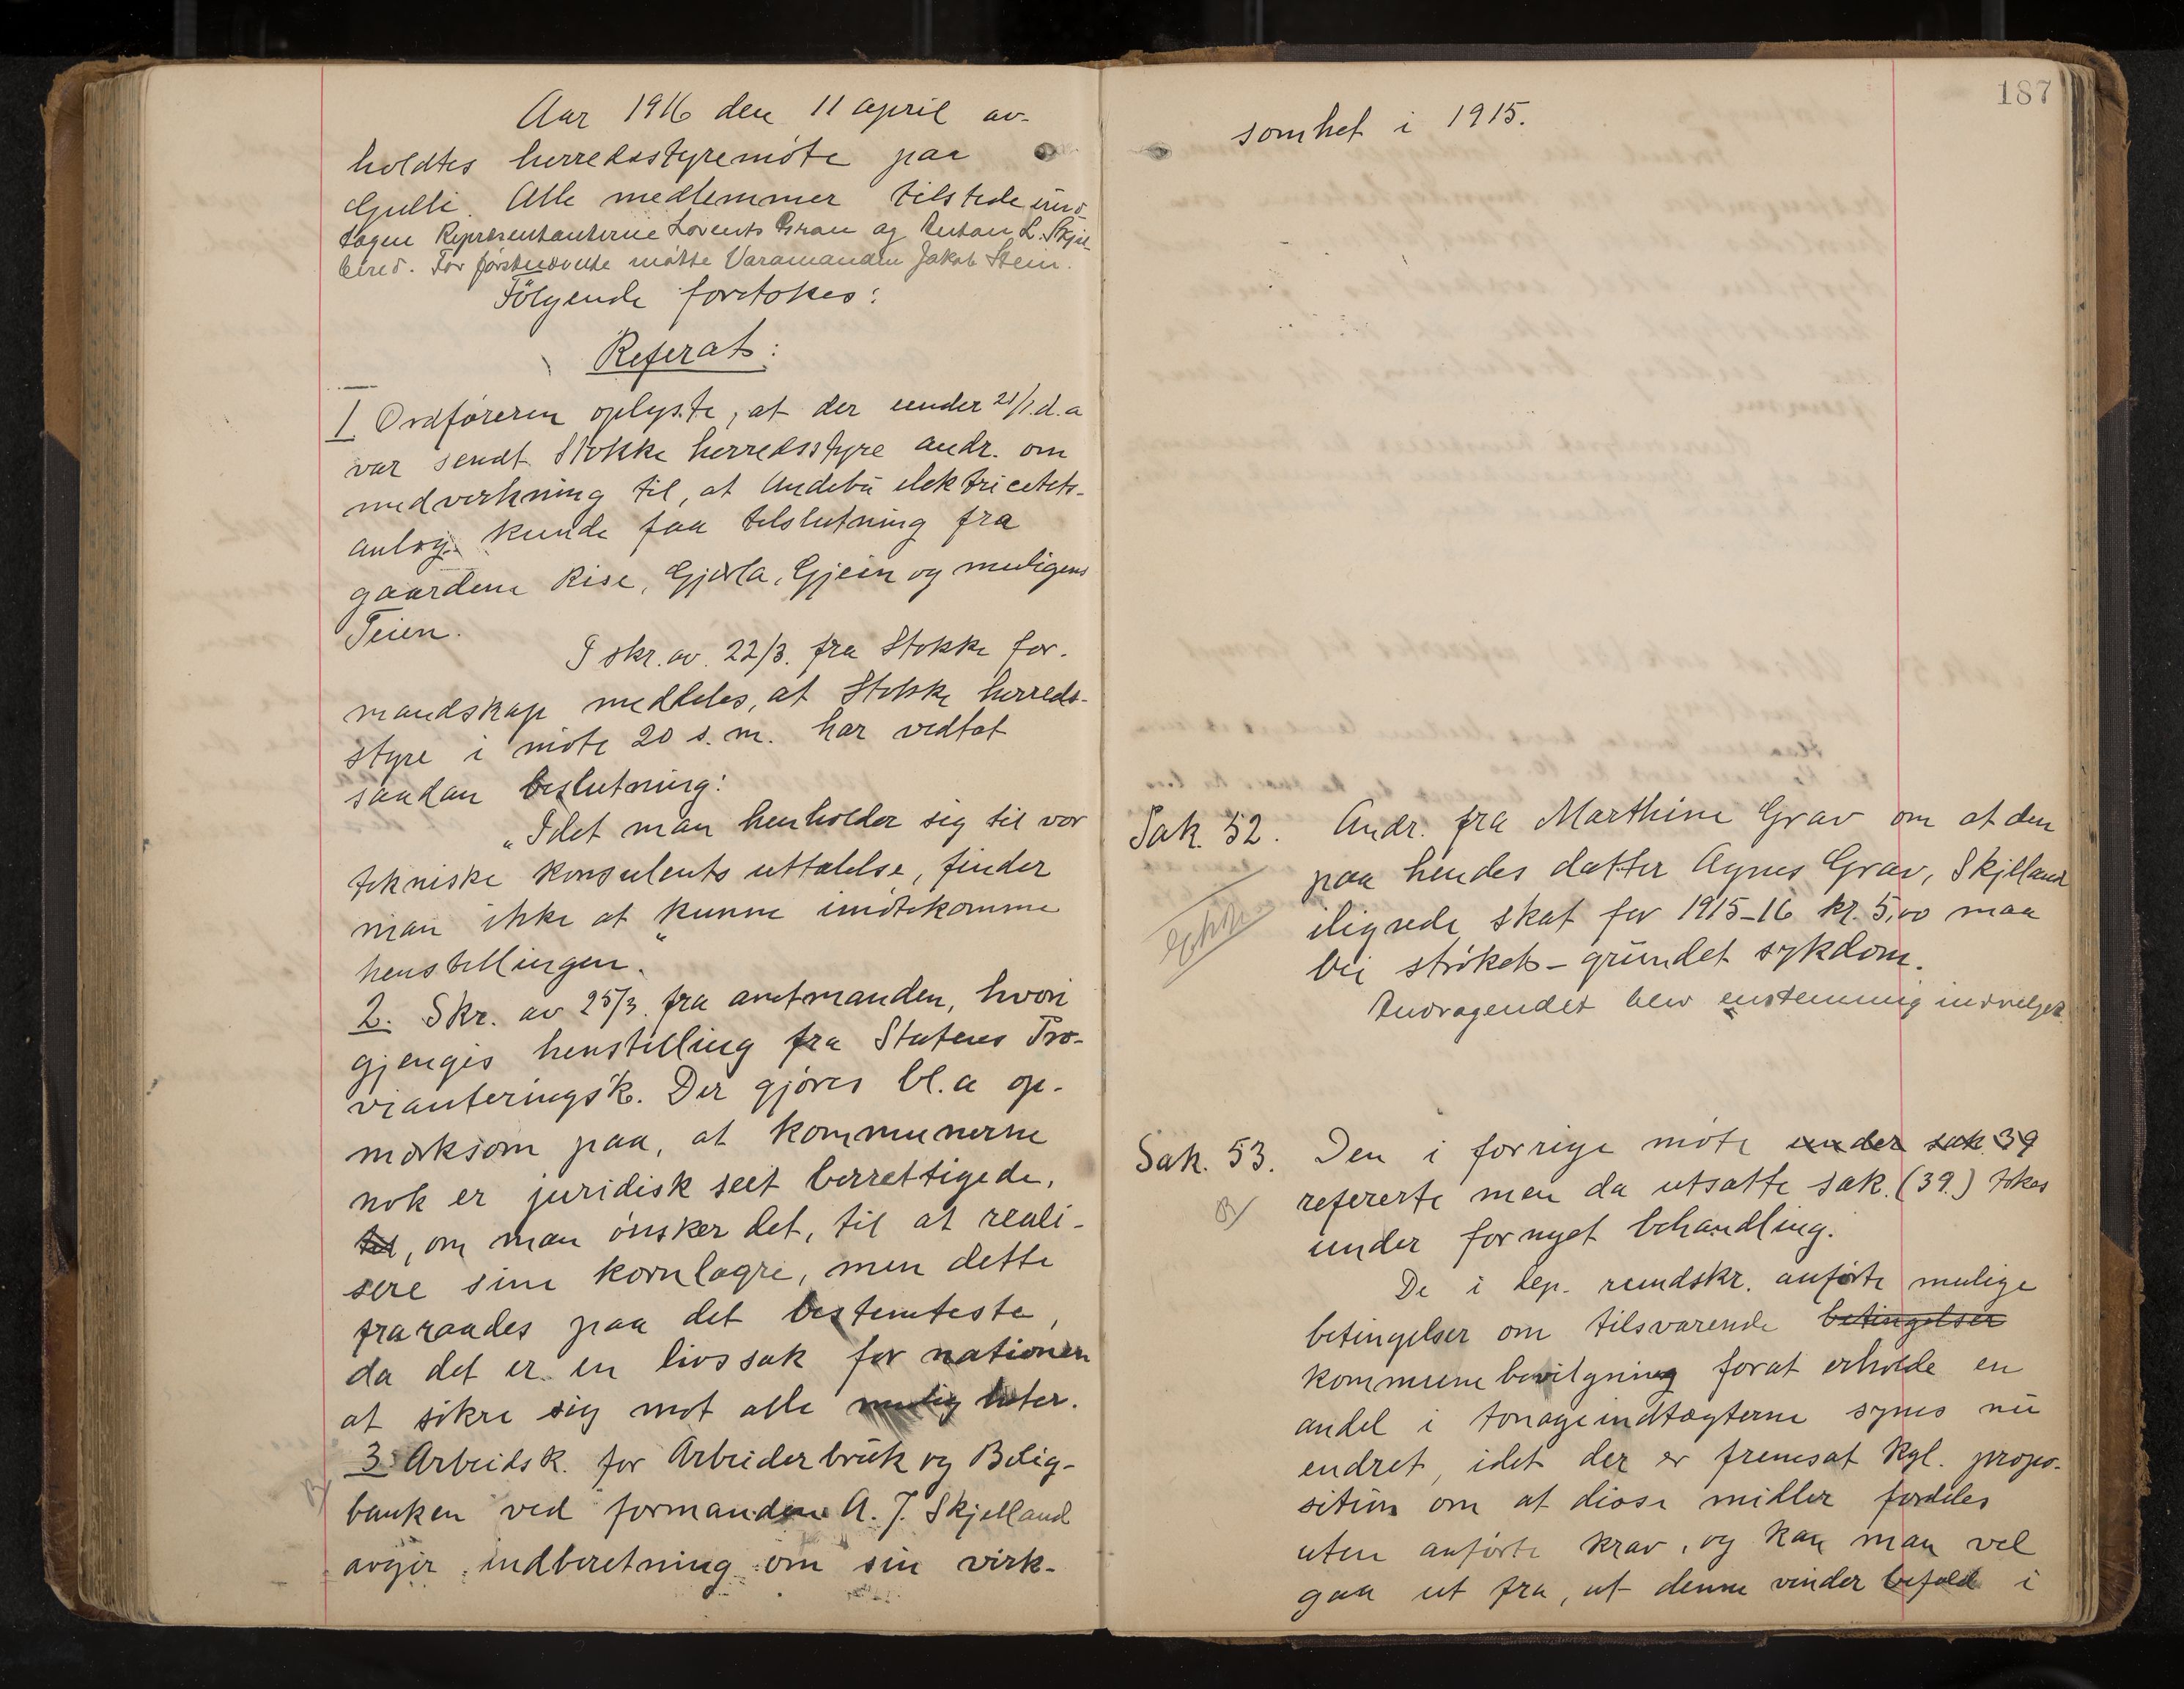 Aar 1916 den 11 april av-
holdtes herredsstyremöte paa
Gulli. Alle medlemmer tilstede und-
tagen Repræsentanterne Lorents Gran og Anton L. Skjel-
bred. For förstnævnte mötte Varamanden Jakob Stein.
Fölgende foretokes:
Referat:
1 Ordföreren oplyste, at der under 21/1. d.a
var sendt Stokke herredsstyre andr. om
medverkning til, at Andebu elektricitets-
anlæg kunde faa tilslutning fra
gaardene Rise, Gjerla, Gjein og muligens
Teien.
I skr. av 22/3. fra Stokke for-
mandskap meddeles, at Stokke herreds-
styre i möte 20 s.m. har vedtat
saadan beslutning:
"Idet man henholder sig til vor
tekniske konsulents uttalelse, finder
man ikke at kunne imötekomme
henstillingen."
2. Skr. av 25/3. fra amtmanden, hvori
gjengis henstilling fra Statens Pro-
vianteringsk. Der gjöres bl.a op-
merksom paa, at kommunerne
nok er juridisk seet berrettigede,
til, om man önsker det, til at reali-
sere sine kornlagre, men dette
fraraades paa det bestemteste,
da det er en livssak for nationen
at sikre sig mot alle muligheter.
3 Arbeidsk. for Arbeiderbruk og Bolig-
B/
banken ved formanden A. J. Skjelland
avgir indberetning om sin virk-
187
somhet i 1915.
Sak. 52. Andr. fra Marthine Grav om at den
paa hendes datter Agnes Grav, Skjelland
ilignede skat for 1915-16 kr. 5,00 maa
bli ströket - grundet sykdom.
Andragendet blev enstemmig indvilget.
Sak. 53. Den i forrige möte under sak 39
refererte men da utsatte sak. (39.) tokes
B/
under fornyet behandling.
De i dep. rundskr. anförte mulige
betingelser om tilsvarende betingelser
kommunebevilgning forat erholde en
andel i tonageindtægterne synes nu
endret, idet der er fremsat kgl. propo-
sition om at disse midler fordeles
uten anförte krav, og kan man vel
gaa ut fra, at denne vinder bifald i